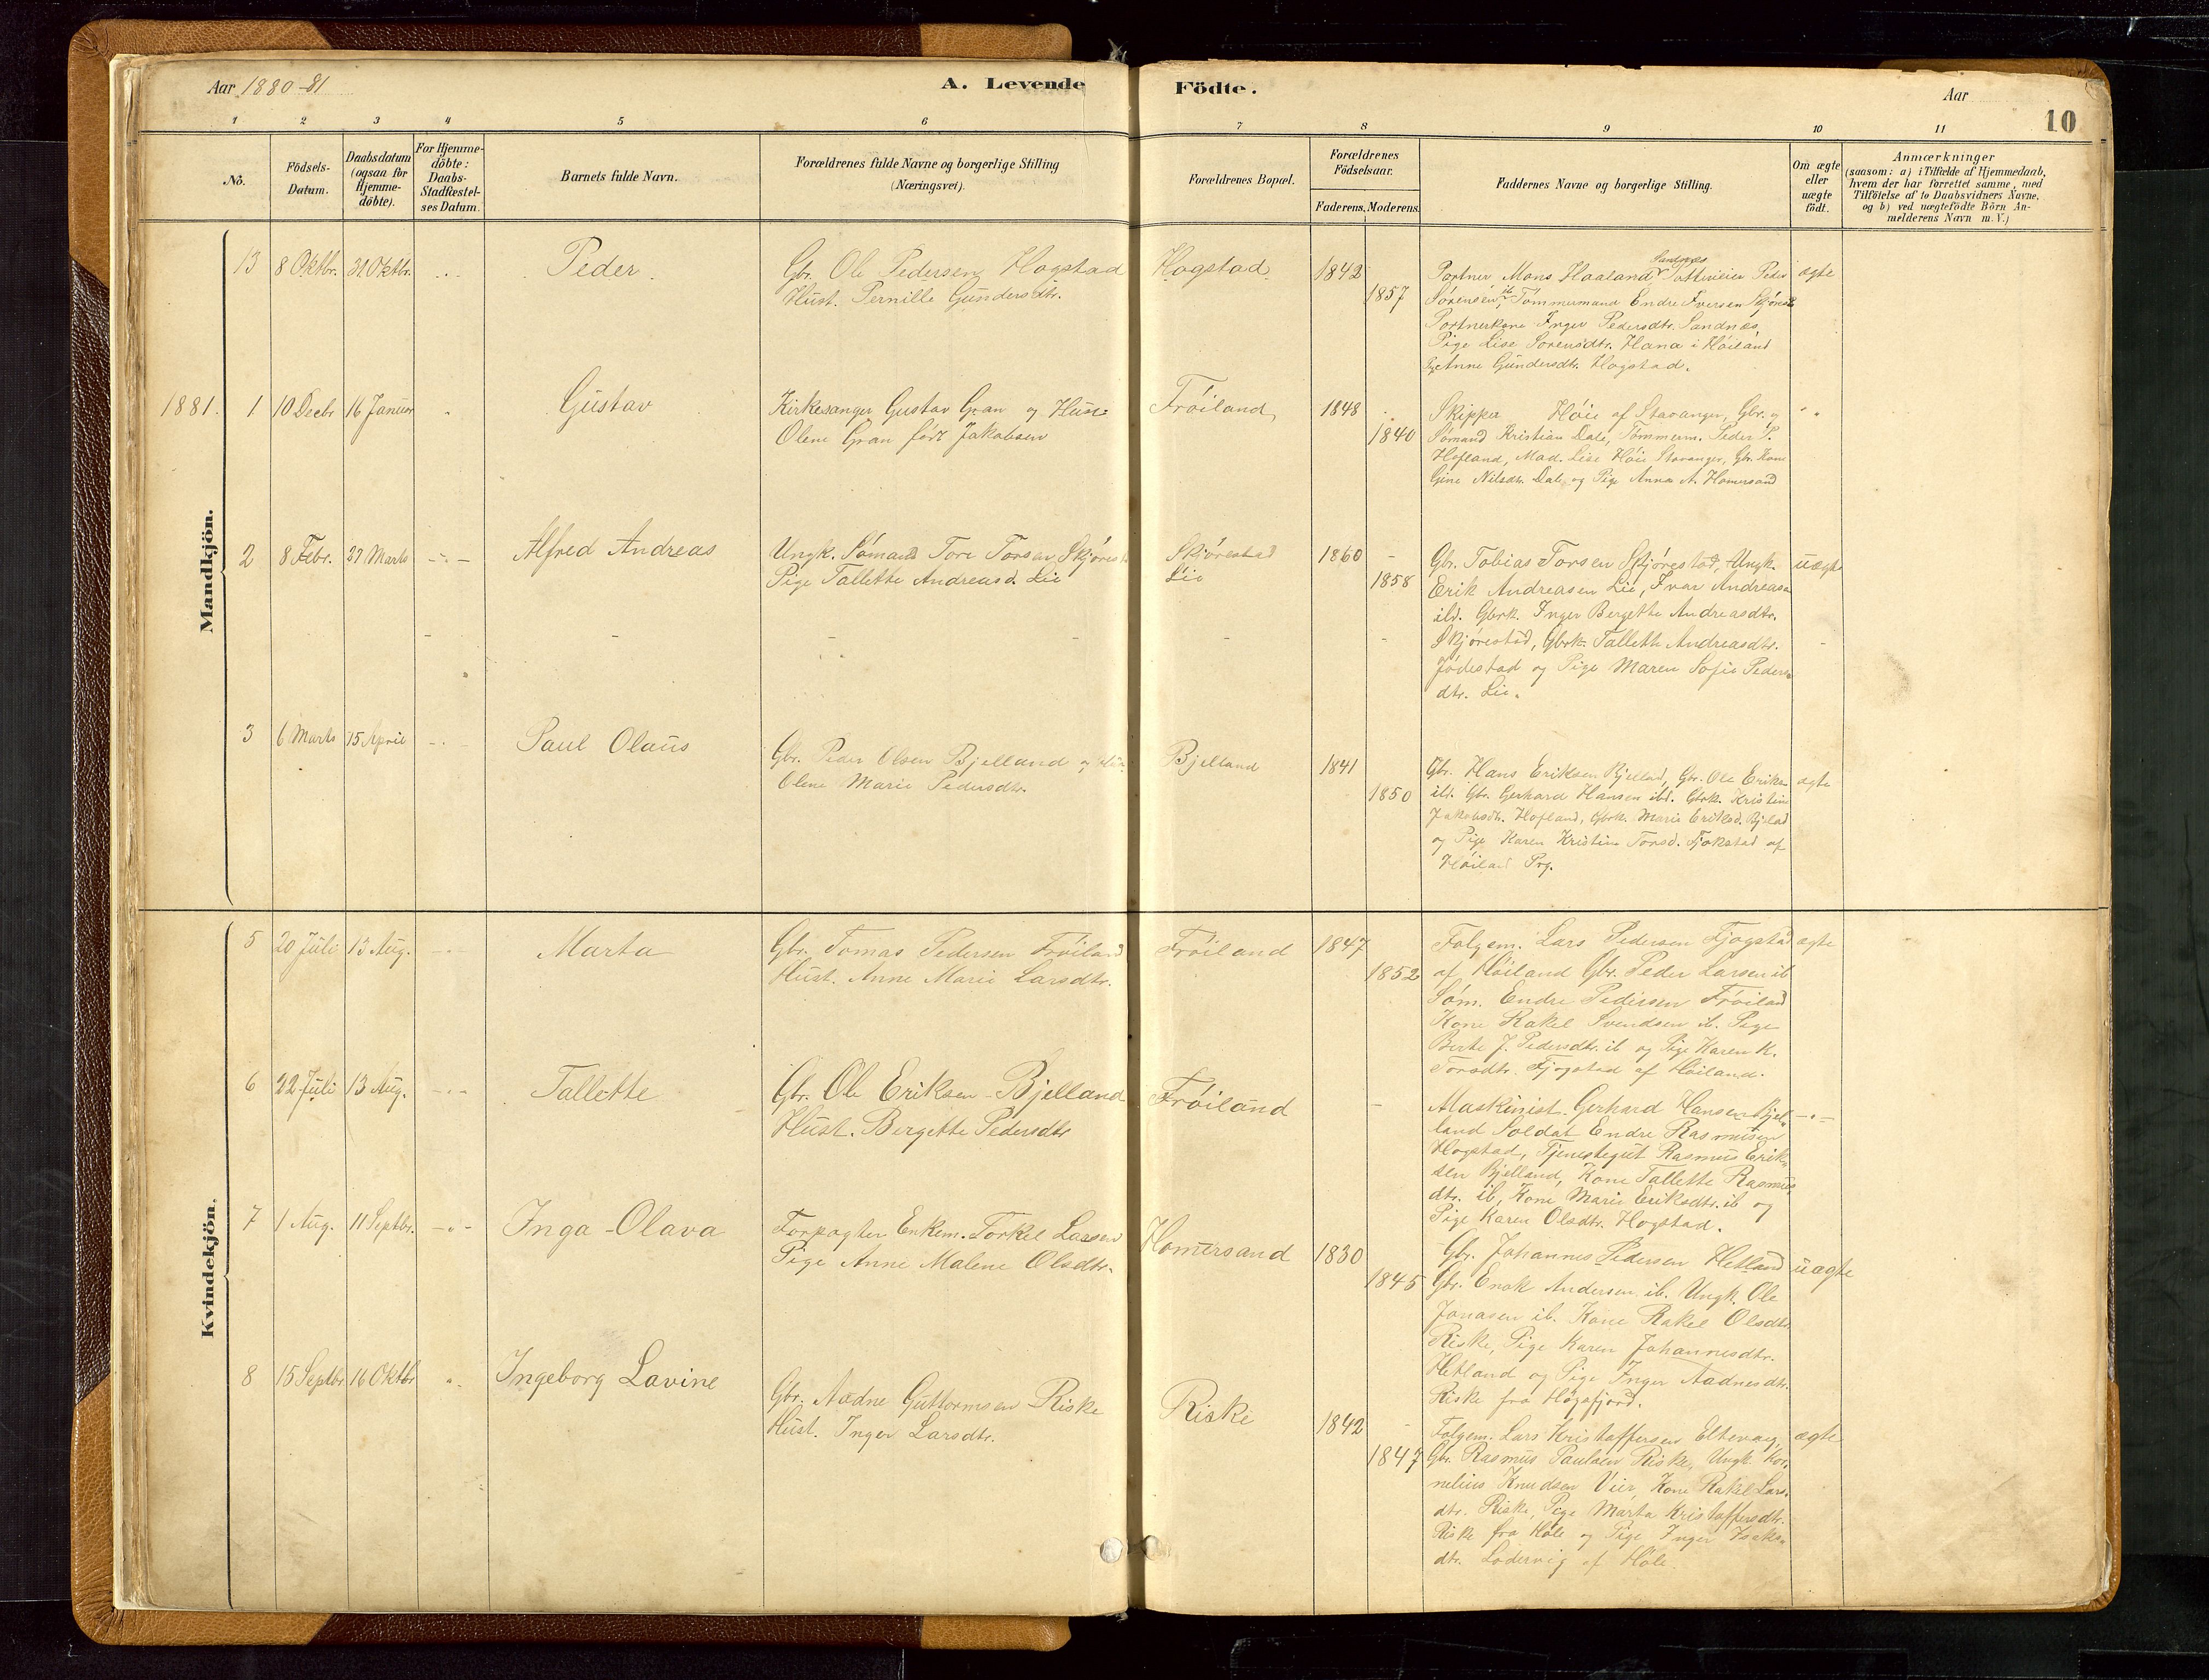 Aar 1880-81
A. Levende Födte.
Aar
10
1 2 3 4 5 6 7 8 9 10 11
No.
Födsels-Datum.
Daabsdatum (ogsaa for Hjemme-döbte).
For Hjemme-döbte: Daabs-Stadfæstel-ses Datum.
Barnets fulde Navn.
Forældrenes fulde Navne og borgerlige Stilling (Næringsvei).
Forældrenes Bopæl.
Forældrenes Födselsaar.
Faderens. Moderens.
Faddernes Navne og borgerlige Stilling.
Om ægte eller uægte födt.
Anmærkninger
(saasom: a) i Tilfælde af Hjemmedaab,
hvem der har forrettet samme, med
Tilföielse af to Daabsvidners Navne,
og b) ved uægtefödte Börn An-
melderens Navn m. V.)
Mandkjön.
13 8 Oktbr. 31 Oktbr. Peder.
Gbr. Ole Pedersen Hogstad
Hust. Pernille Gundersdtr.
Hogstad 1842
1857
Sandnæs
Portner Mons Haaland Peder
Sørensen ib Tømmermand Endre Iversen
Portnerkone Inger Pedersdtr. Sandnæs,
Pige Lise Sorensdtr. Hana i Høiland
Anne Gundersdtr. Hogstad.
ægte
1881. 1 10 Decbr 16 Januar Gustav
Kirkesanger Gustav Gran og Hus
Olene Gran født Jakobsen
Frøiland, 1848
1840
Skipper Høie af Stavanger, Gbr. og
Sømand Kristian Dale, Tømmerm. Peder P.
Hofland, Mad. Lise Høie Stavanger, Gbr. Kone
Gine Nilsdtr. Dale og Pige Anna A. Homersand
2 8 Febr. 27 Marts Alfred Andreas
Ungk. Sømand Tore Torsen
Pige Tallette Andreasd. Lie
Skjørestad
Lie
1860
1858
Gbr. Tobias Torsen Skjørestad, Ungk.
Erik Andreasen Lie, Ivar Andreasen
ibd. Gbrk. Inger Bergette Andreasdtr.
Skjørestad, Gbrk. Tallette Andreasdtr.
Jødestad og Pige Maren Sofie Peders
dtr. Lie.
uægte
3 6 Marts 15 April Paul Olaus
Gbr. Peder Olsen Bjelland og
Olene Marie Pedersdtr.
Bjelland 1841
1850
Gbr. Hans Eriksen Bjelland, Gbr. Ole Eriksen
ibd. Gbr. Gerhard Hansen ibd. Gbrk. Kristine
Jakobsdtr. Hofland, Gbrk. Marie Eriksd.
og Pige Karen Kristine Torsd. af
Høiland Prg.
ægte
Kvindekjön.
5 20 Juli 13 Aug. Marta
Gbr. Tomas Pedersen Frøiland
Hust. Anne Marie Larsdtr.
Frøiland 1847
1852
Folgem. Lars Pedersen Fjogstad
af Høiland Gbr. Peder Larsen ib
Søm. Endre Pedersen Frøiland
Kone Rakel Svendsen ib. Pige
Berte J. Pedersdtr. ib og Pige Karen K.
Torsdtr. Fjogstad af Høiland.
ægte
6 22 Juli 13 Aug. Tallette
Gbr. Ole Eriksen Bjelland
Hust. Bergette Pedersdtr
Frøiland
Maskinist Gerhard Hansen Bjel-
land Soldat Endre Rasmusen
Hogstad, Tjenestegut Rasmus Erik-
sen Bjelland, Kone Tallette Rasmus
dtr. ib, Kone Marie Eriksdtr. ib og
Pige Karen Olsdtr. Hogstad.
7 1 Aug. 11 Septbr. Inga Olava
Forpagter Enkem. Torkel Larsen
Pige Anne Malene Olsdtr.
Homersand 1830
1845
Gbr. Johannes Pedersen Hetland
Gbr. Enok Andersen ib. Ungk. Ole
Jonasen ib. Kone Rakel Olsdtr.
Riske, Pige Karen Johannesdtr.
Hetland og Pige Inger Aadnesdtr.
Riske fra Høgsfjord.
uægte
8 15 Septbr. 16 Oktbr Ingeborg Lavine
Gbr. Aadne Guttormsen Riske
Hust. Inger Larsdtr.
Riske 1842
1847
Folgem. Lars Kristoffersen Eltevaag,
Gbr. Rasmus Paulsen Riske, Ungk. Kor-
nelius Knudsen Vier, Kone Rakel Lars-
dtr. Riske, Pige Marta Kristoffersdtr.
Riske fra Høle og Pige Inger Isaks
dtr. Lodervig af Høle.
ægte